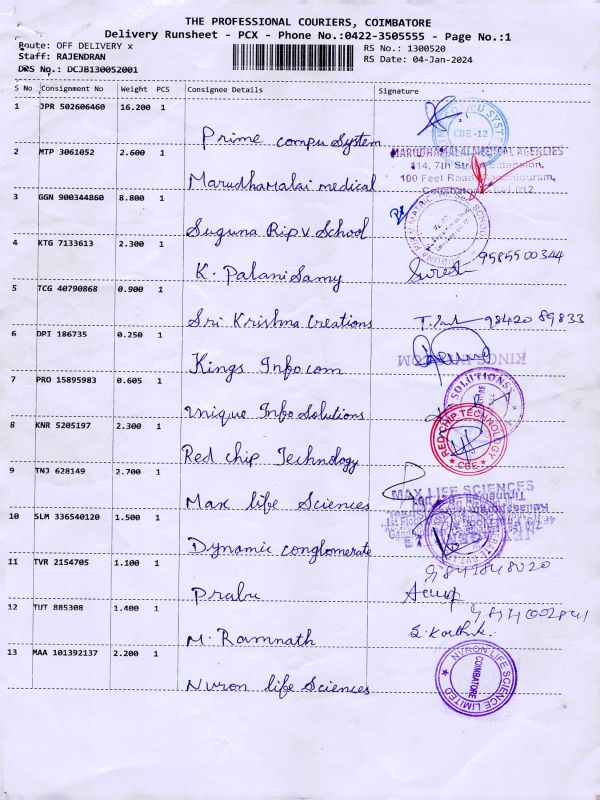 THE PROFESSIONAL COURIERS, COIMBATORE
Delivery Runsheet - PCX - Phone No.:0422-3505555 - Page No.:1
Route: OFF DELIVERY x
Staff: RAJENDRAN
DRS No.: DCJB130052001
RS No.: 1300520
RS Date: 04-Jan-2024
S No Consignment No Weight PCS Consignee Details Signature
1 JPR 502606460 16.200 1
Prime compu System
CBE-12
2 MTP 3061052 2.600 1
MARUDHAMALAI MEDICAL AGENCIES
114, 7th Street Extension,
100 Feet Road, Gandhipuram,
Marudhamalai medical
3 GGN 900344860 8.800 1
Suguna Rip v. School
4 KTG 7133613 2.300 1
K. PalaniSamy
Suresh 9585500344
5 TCG 40790868 0.900 1
Sri Krishna Creations
98420 89833
6 DPI 186735 0.250 1
Kings Info.com
KINGS INFO.COM
7 PRO 15895983 0.605 1
Unique Info Solutions
SOLUTIONS
8 KNR 5205197 2.300 1
Red chip Technology
RED CHIP TECHNOLOGY
CBE
9 TNJ 628149 2.700 1
Max life Sciences
MAX LIFE SCIENCES
10 SLM 336540120 1.500 1
Dynamic conglomerate
11 TVR 2154705 1.100 1
Prabu
12 TUT 885308 1.400 1
M. Ramnath
S. Karthik
13 MAA 101392137 2.200 1
Nuron life Sciences
NVRON LIFE SCIENCE LIMITED
COIMBATORE